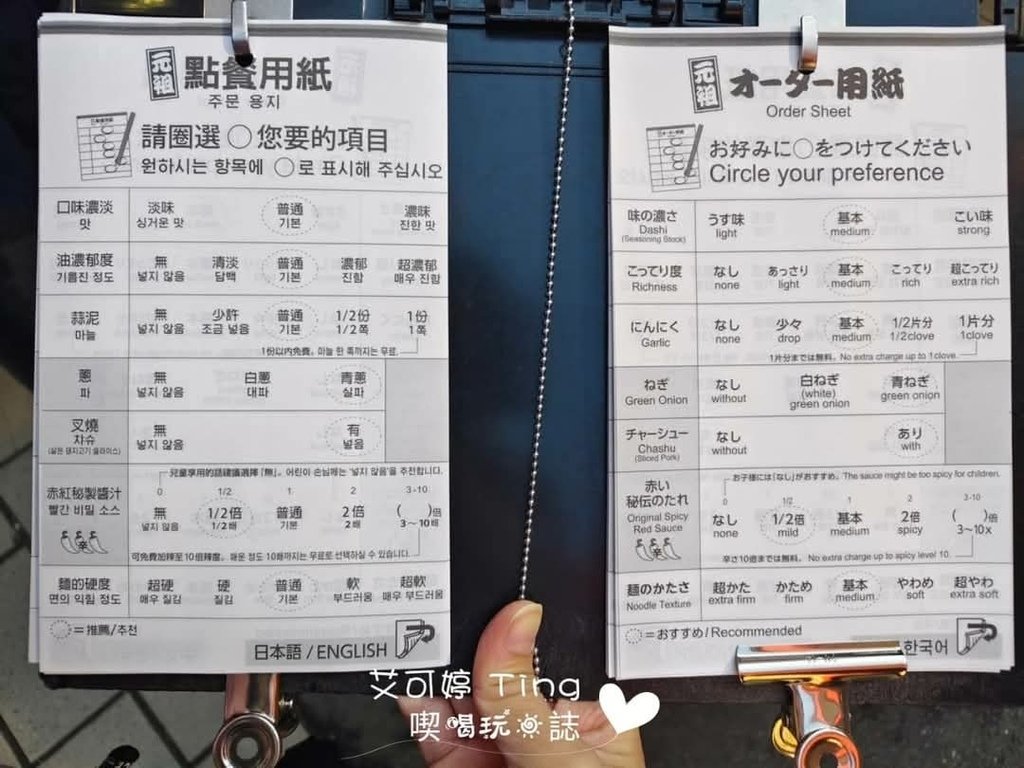 元祖 點餐用紙
주문 용지
請圈選 ○ 您要的項目
원하시는 항목에 ○로 표시해 주십시오
口味濃淡 淡味 普通 濃味
맛 싱거운 맛 기본 진한 맛
油濃郁度 無 清淡 普通 濃郁 超濃郁
기름진 정도 넣지 않음 담백 기본 진함 매우 진함
蒜泥 無 少許 普通 1/2份 1份
마늘 넣지 않음 조금 넣음 기본 1/2쪽 1쪽
1份以內免費。마늘 한 쪽까지는 무료.
蔥 無 白蔥 青蔥
파 넣지 않음 대파 실파
叉燒 無 有
챠슈 넣지 않음 넣음
(삶은 돼지고기 슬라이스)
兒童享用的話建議選擇「無」。어린이 손님께는 '넣지 않음'을 추천합니다.
0 1/2 1 2 3-10
赤紅秘製醬汁 無 1/2倍 普通 2倍 ( )倍
빨간 비밀 소스 넣지 않음 1/2배 기본 2배 3~10배
辛
可免費加辣至10倍辣度。매운 정도 10배까지는 무료로 선택하실 수 있습니다.
麵的硬度 超硬 硬 普通 軟 超軟
면의 익힘 정도 매우 질김 질김 기본 부드러움 매우 부드러움
=推薦/추천
日本語 / ENGLISH
元祖 オーダー用紙
Order Sheet
お好みに○をつけてください
Circle your preference
味の濃さ うす味 基本 こい味
Dashi light medium strong
(Seasoning Stock)
こってり度 なし あっさり 基本 こってり 超こってり
Richness none light medium rich extra rich
にんにく なし 少々 基本 1/2片分 1片分
Garlic none drop medium 1/2clove 1clove
1片分までは無料。No extra charge up to 1clove.
ねぎ なし 白ねぎ 青ねぎ
Green Onion without (white) green onion green onion
チャーシュー なし あり
Chashu without with
(Sliced Pork)
お子様には「なし」がおすすめ。The sauce might be too spicy for children.
0 1/2 1 2 3-10
赤い
秘伝のたれ なし 1/2倍 基本 2倍 ( )倍
Original Spicy Red Sauce none mild medium spicy 3~10x
辛
辛さ10倍までは無料。No extra charge up to spicy level 10.
麺のかたさ 超かた かため 基本 やわめ 超やわ
Noodle Texture extra firm firm medium soft extra soft
=おすすめ/Recommended
한국어
艾可婷 Ting
喫喝玩樂誌